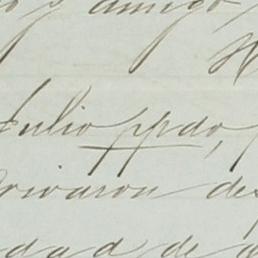 y amigo
Julio ppdo,
privaron des
dad de